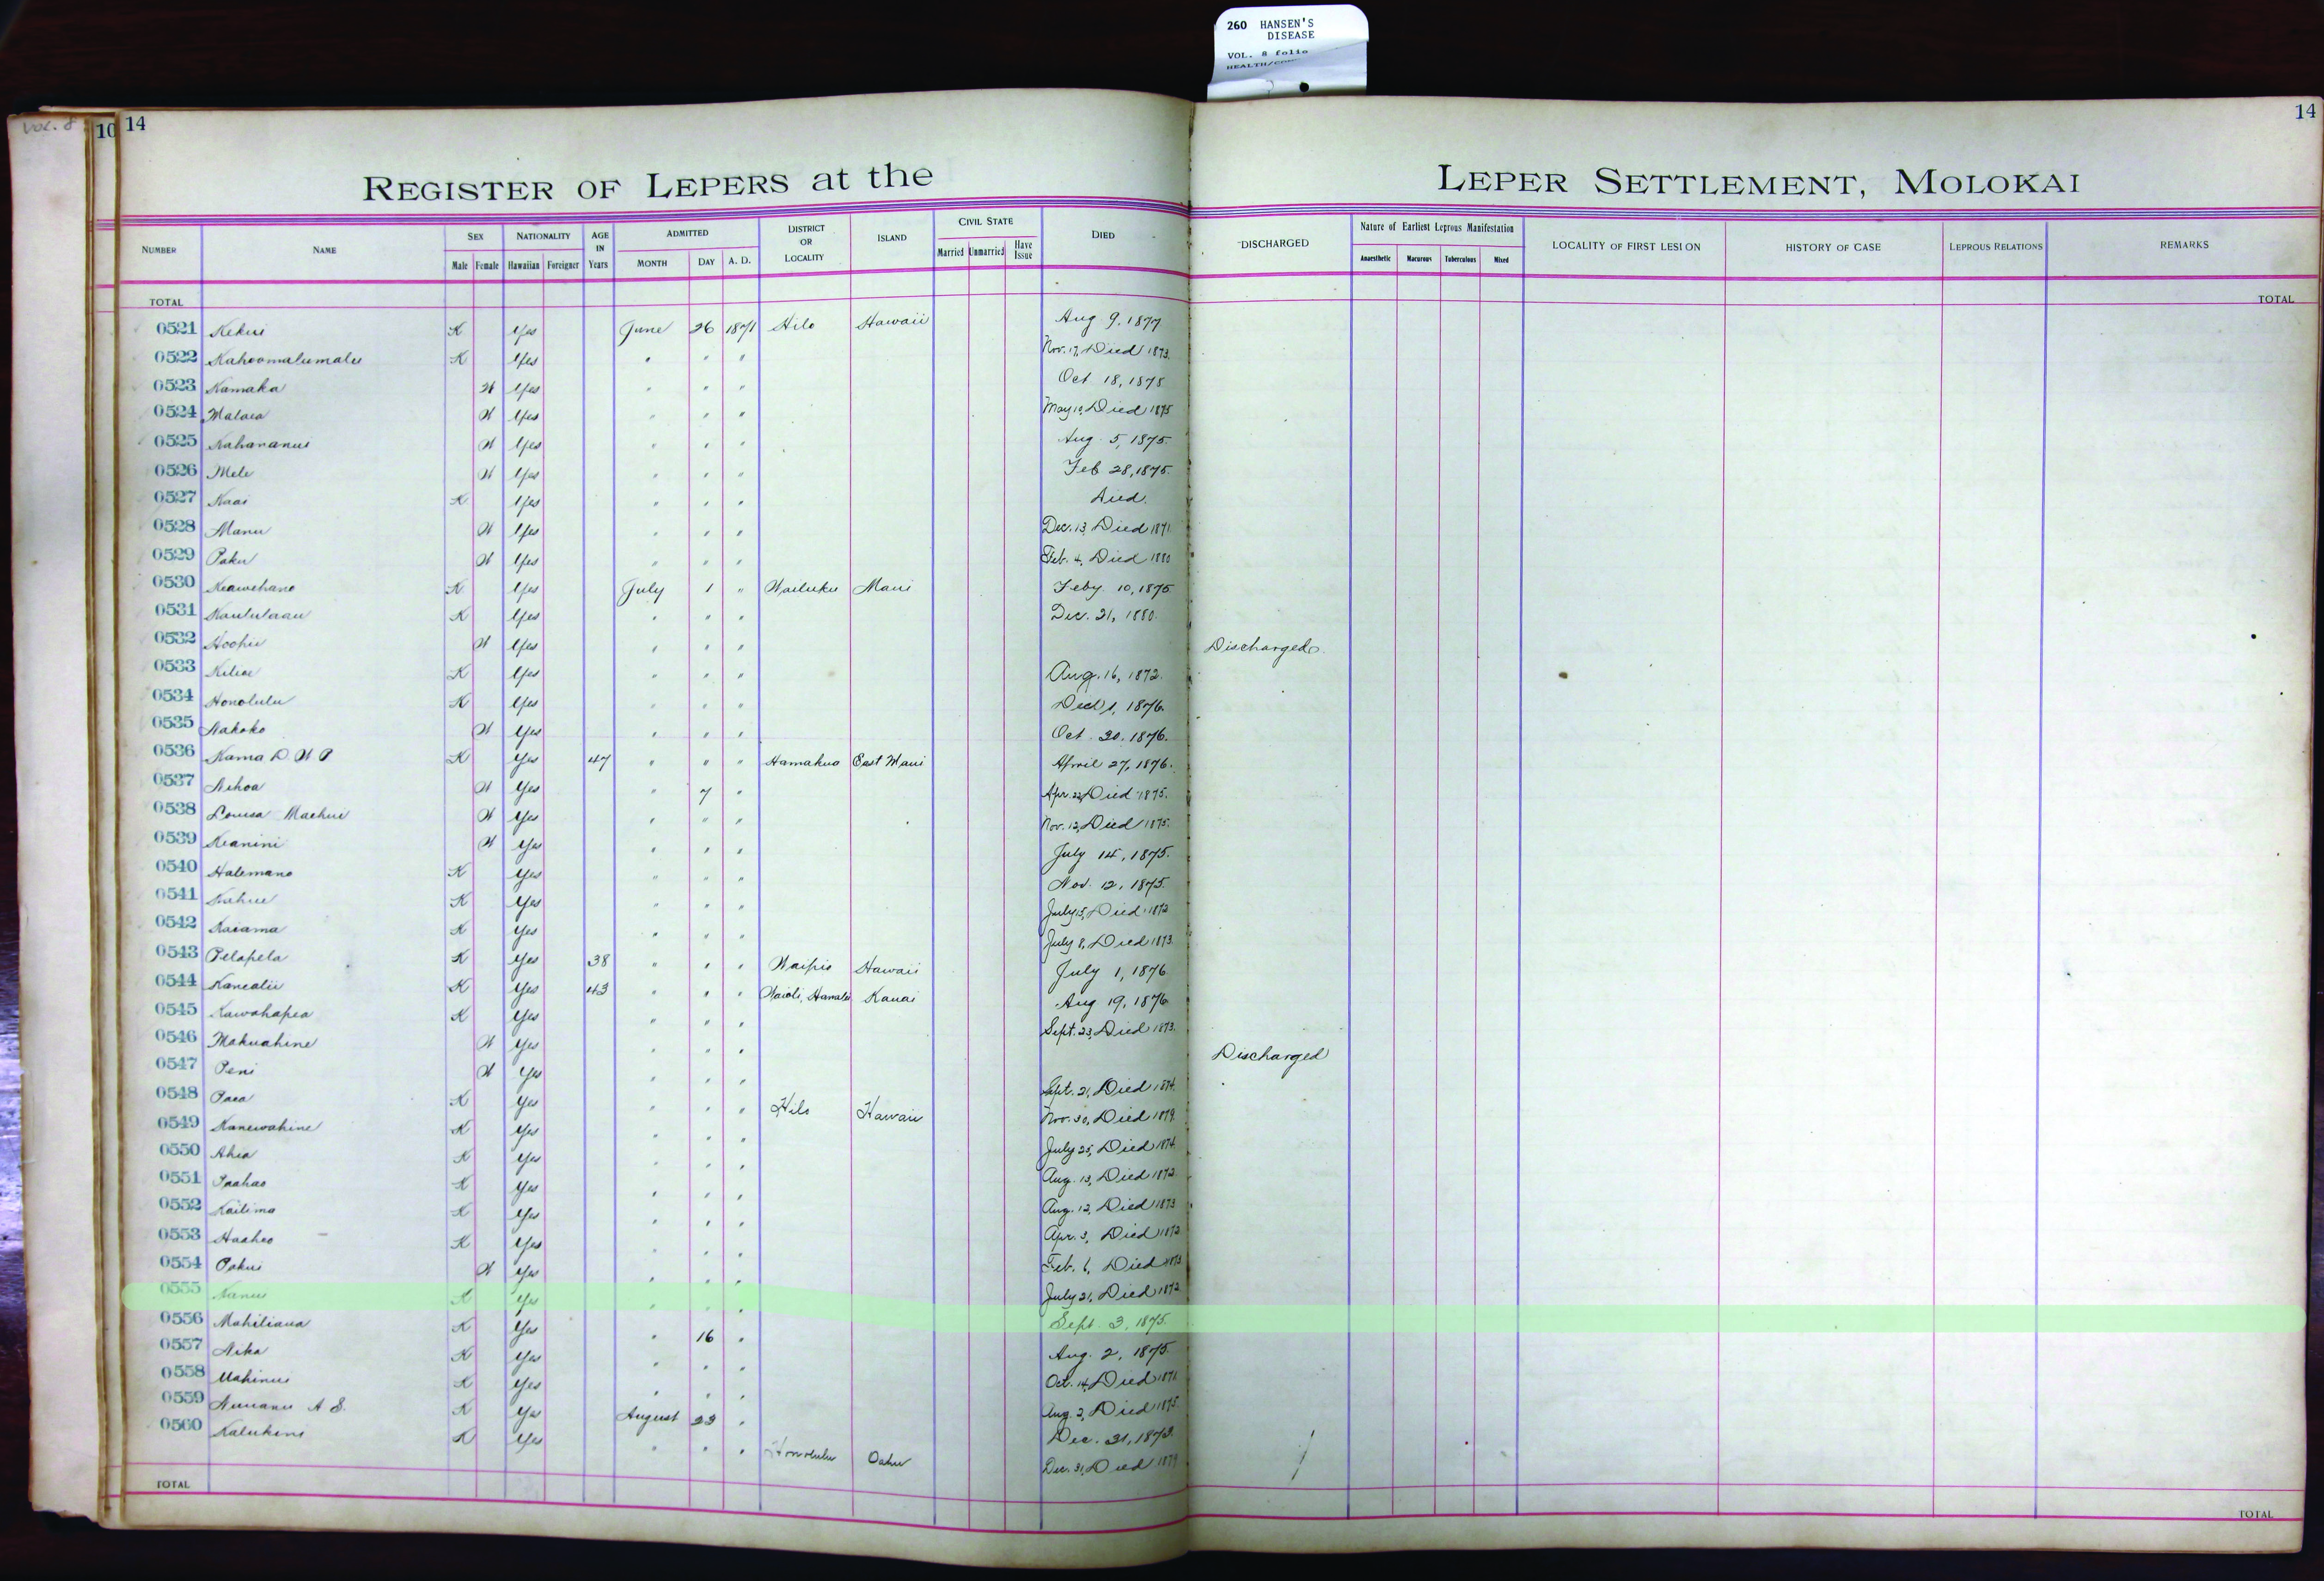 260 HANSEN'S
DISEASE
VOL. 8 folio
HEALTH/
Vol. 8
10 14 14
REGISTER OF LEPERS at the LEPER SETTLEMENT, MOLOKAI
NUMBER NAME SEX Male Female NATIONALITY Hawaiian Foreigner AGE IN Years ADMITTED MONTH DAY A. D. DISTRICT OR LOCALITY ISLAND CIVIL STATE Married Unmarried Have Issue DIED DISCHARGED Nature of Earliest Leprous Manifestation Anaesthetic Macurous Tuberculous Mixed LOCALITY OF FIRST LESION HISTORY OF CASE LEPROUS RELATIONS REMARKS
TOTAL TOTAL
0521 Kekui K Yes June 26 1871 Hilo Hawaii Aug 9, 1877
0522 Kahoomalumalu K Yes " " " Nov. 17, Died 1873.
0523 Kamaka W Yes " " " Oct 18, 1875
0524 Malaea W Yes " " " May 10, Died 1875
0525 Kahananui W Yes " " " Aug. 5, 1875.
0526 Mele W Yes " " " Feb 28, 1875.
0527 Kaai K Yes " " " Died.
0528 Manu W Yes " " " Dec. 13, Died 1871
0529 Paku W Yes " " " Feb. 4, Died 1880
0530 Keawehano K Yes July 1 " Wailuku Maui Feby 10, 1875
0531 Kaululaau K Yes " " " Dec. 21, 1880.
0532 Hoohii W Yes " " " Discharged.
0533 Kiliae K Yes " " " Aug. 16, 1872.
0534 Honolulu K Yes " " " Dec 1, 1876.
0535 Nakoko W Yes " " " Oct 20, 1876.
0536 Kama D. W P K Yes 47 " " " Hamakua East Maui April 27, 1876.
0537 Nihoa W Yes " 7 " Apr. 22, Died 1875.
0538 Louisa Maehui W Yes " " " Nov. 12, Died 1875.
0539 Keanini W Yes " " " July 14, 1875.
0540 Halemano K Yes " " " Nov. 12, 1875.
0541 Kahue K Yes " " " July 15, Died 1872
0542 Kaiama K Yes " " " July 8, Died 1873.
0543 Pelapela K Yes 38 " " " Waipio Hawaii July 1, 1876
0544 Kanealii K Yes 43 " " " Waioli, Hanalei Kauai Aug 19, 1876
0545 Kawahapea K Yes " " " Sept. 23, Died 1873.
0546 Makuahine W Yes " " " Discharged
0547 Peni W Yes " " " Sept. 21, Died 1874.
0548 Paea K Yes " " " Hilo Hawaii Nov. 30, Died 1879.
0549 Kanewahine K Yes " " " July 25, Died 1874.
0550 Ahia K Yes " " " Aug. 13, Died 1872.
0551 Paahao K Yes " " " Aug. 12, Died 1873
0552 Kailima K Yes " " " Apr. 3, Died 1872
0553 Haaheo K Yes " " " Feb. 6, Died 1873
0554 Pakui W Yes " " " July 21, Died 1872
0555 Nanui K Yes " " " Sept. 3, 1875.
0556 Mahiliaua K Yes " 16 " Aug. 2, 1875.
0557 Nika K Yes " " " Oct. 14, Died 1871.
0558 Mahinui K Yes " " " Aug. 2, Died 1875.
0559 Nuuanu A S. K Yes August 23 " Dec. 31, 1873.
0560 Kalukini K Yes " " " Honolulu Oahu Dec. 31, Died 1879
TOTAL TOTAL